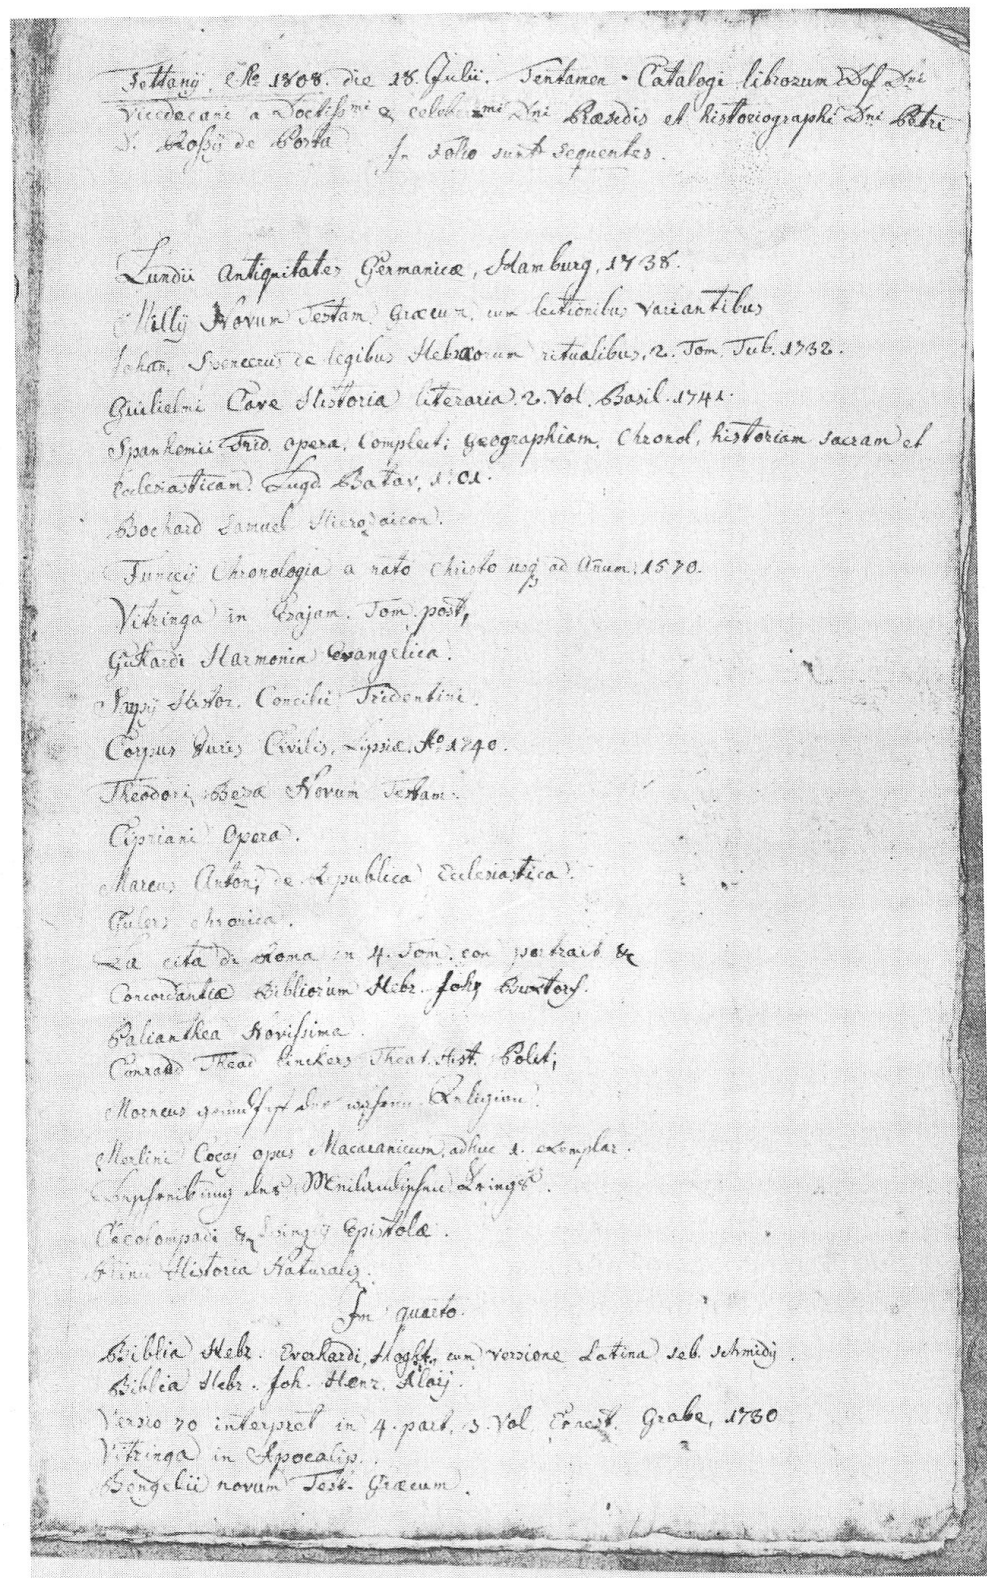 Fettanij, Aº 1808. die 18. Julii. Tentamen Catalogi librorum Def. Dni
Vicedecani a Doctissmi & celeberrmi Dni Præsidis et historiographi Dni Petri
D. Rosij de Porta
In Folio sunt sequentes.
Lundii Antiquitates Germanicæ, Hamburg, 1738.
Millij Novum Testam. Græcum, cum lectionibus variantibus
Johan, Spencerus de legibus Hebræorum ritualibus, 2. Tom. Tub. 1732.
Guilielmi Cave Historia literaria. 2. Vol. Basil. 1741.
Spanhemii Frid. opera, Complect; geographiam, Chronol, historiam sacram et
Ecclesiasticam. Lugd. Batav,
Bochard Samuel Hierozoicon.
Funccij Chronologia a nato Christo usq ad Añum. 1570.
Vitringa in Esajam. Tom. post,
Harmonia Evangelica.
Histor. Concilii Tridentini.
Corpus Juris Civilis, Lipsiæ, Aº 1740.
Theodori, Beza Novum Testam.
Cipriani Opera.
Marcus Anton; de Republica Ecclesiastica.
Gulers chronica.
La cita di Roma in 4. Tom. con portrait &
Concordantiæ Bibliorum Hebr. Joh, Buxtorf.
Palianthea Novissima.
Conradd Thead Linckers Theat. Hist. Polit;
Morneus der wahren Religion.
Merlini Cocaj opus Macaranicum, adhuc 1. exemplar.
Beschreibung des Meiländischen Krings.
Oecolompadi & Zvinglij Epistolæ.
Plinii Historia Naturalis.
In quarto.
Biblia Hebr. Everhardi, Hoght, cum versione Latina seb. schmidij.
Biblia Hebr. Joh. Henr. Maij.
Versio 70 interpret in 4. part. 3. Vol. Ernest. Grabe, 1730
Vitringa in Apocalip.
Bengelii novum Test. Græcum.